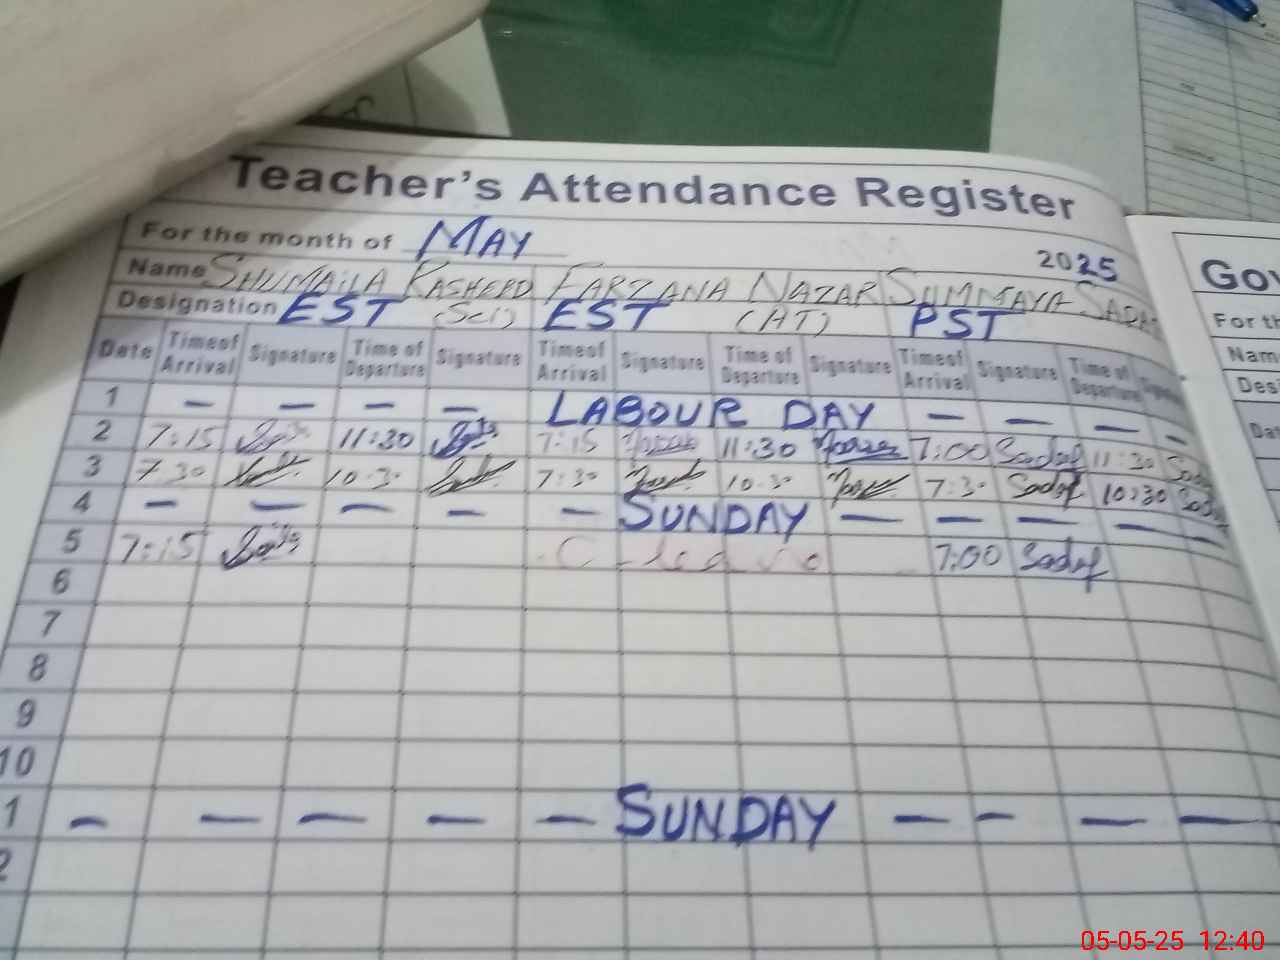 Teacher's Attendance Register
For the month of MAY 2025
Name SHUMAILA KASHEPD FARZANA NAZAR SUMMAYA
Designation EST (Sci) EST (HT) PST
Date Time of Arrival Signature Time of Departure Signature Time of Arrival Signature Time of Departure Signature Time of Arrival Signature Time of Departure
1 — — — — LABOUR DAY — — — —
2 7:15 11:30 7:15 11:30 7:00 Sadaf 11:30
3 7:30 10:30 7:30 10:30 7:30 Sadaf 10:30
4 — — — — — SUNDAY — — — — —
5 7:15 C-leave 7:00 Sadaf
6
7
8
9
10
1 — — — — — SUNDAY — — — —
2
Gov
For th
Nam
Des
Da
05-05-25 12:40